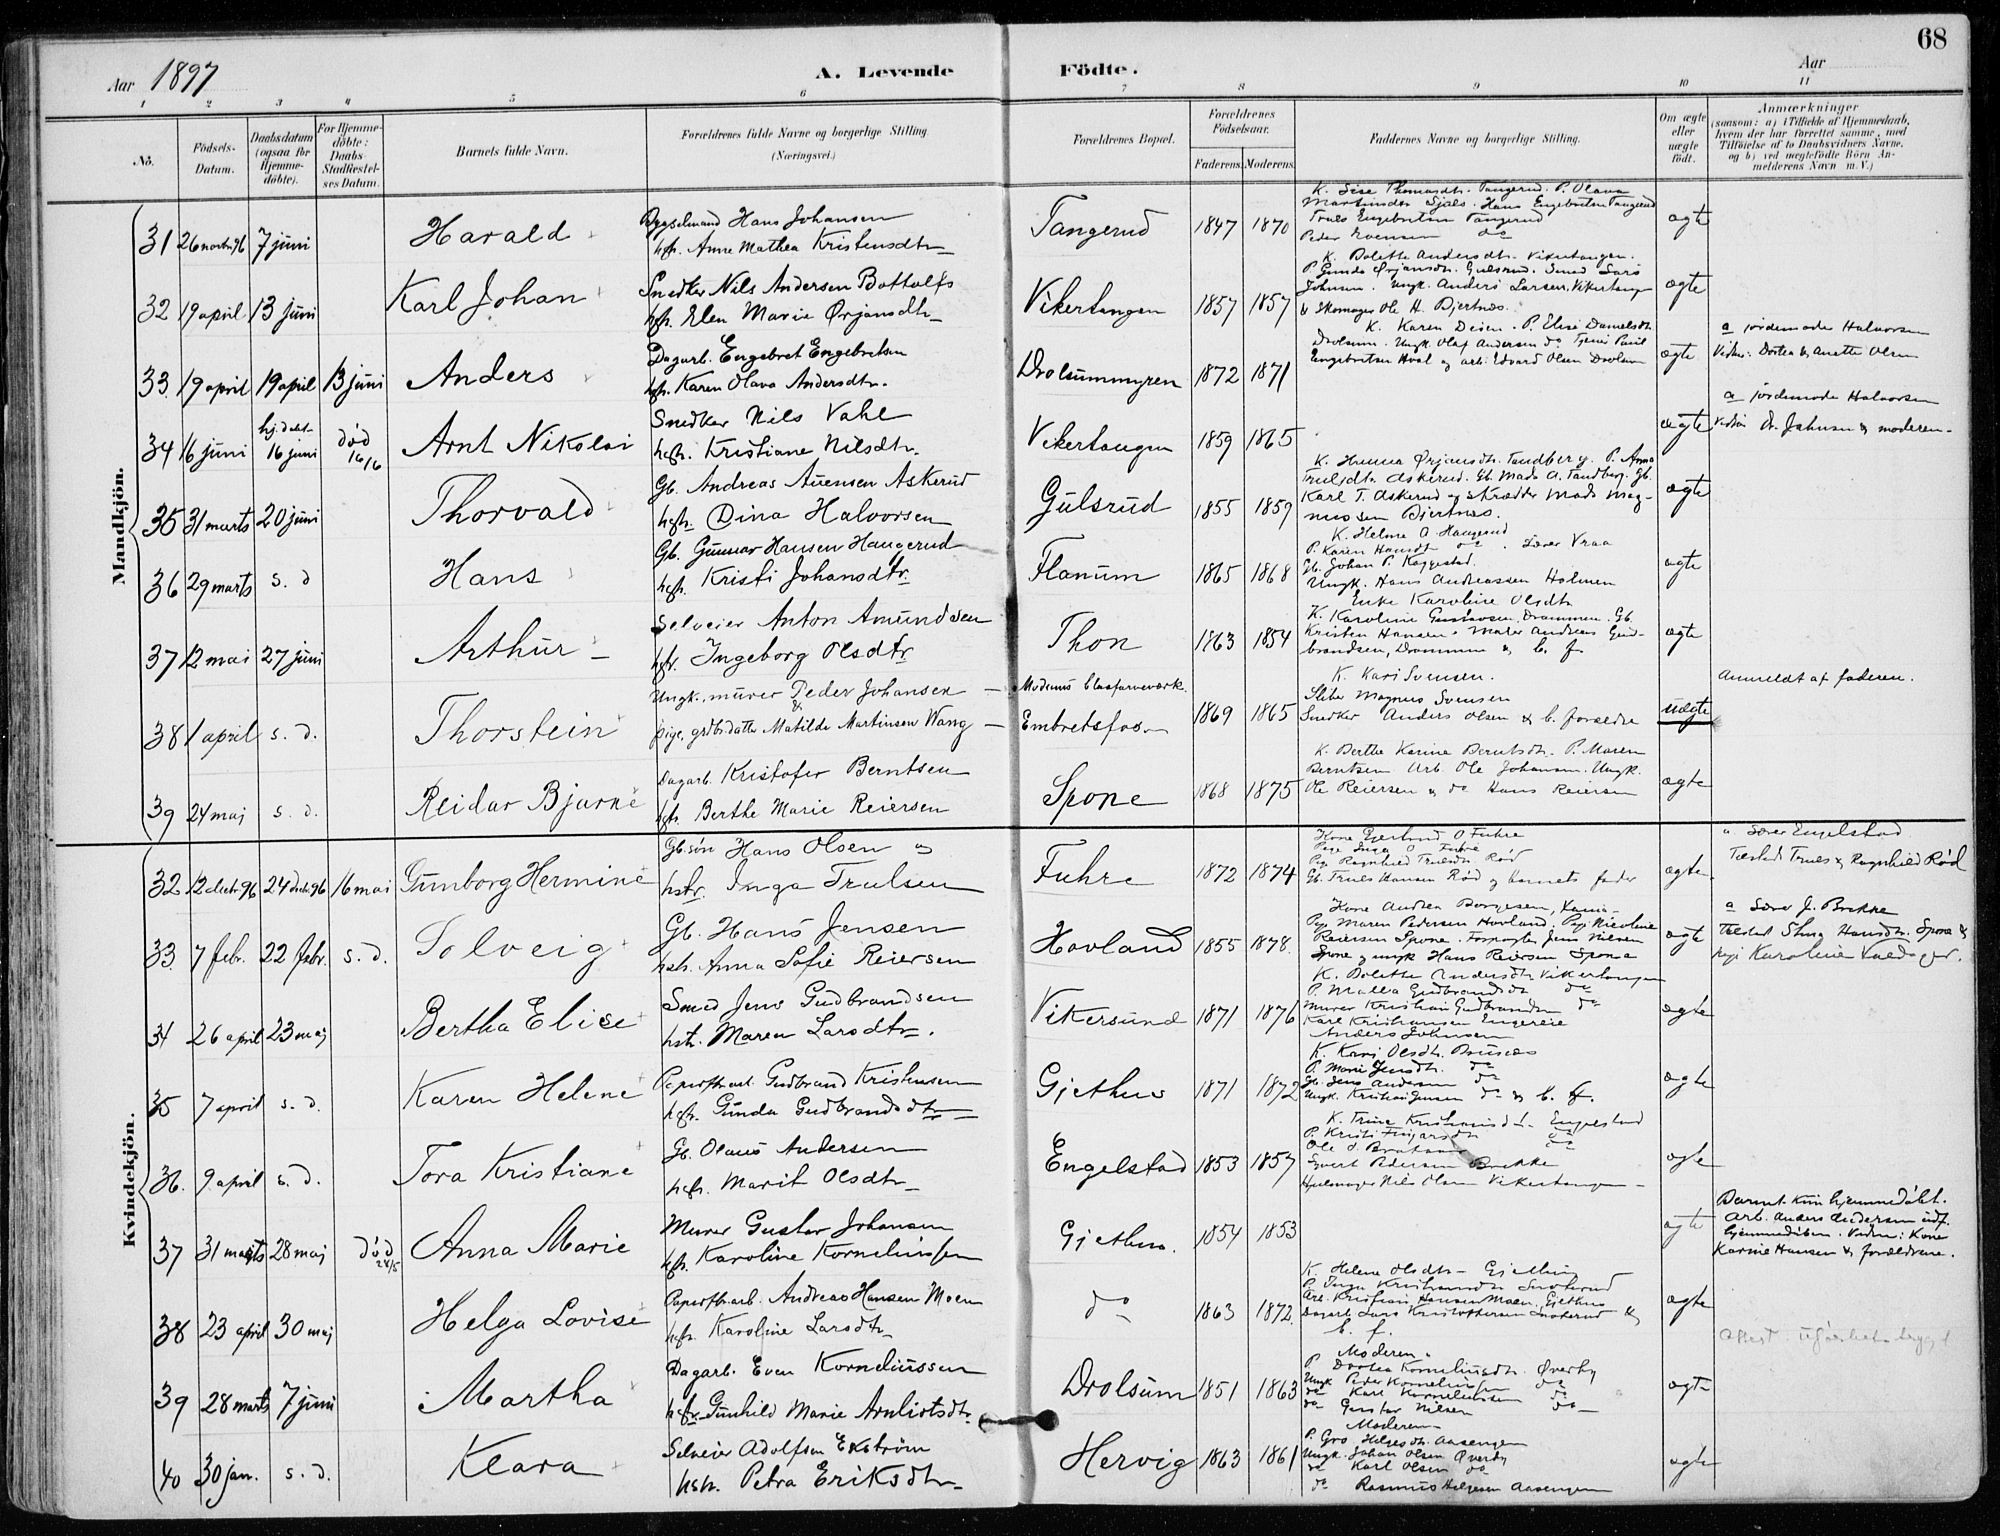 68
Aar 1897
A. Levende Födte.
Aar
1 2 3 4 5 6 7 8 9 10 11
No.
Födsels-Datum.
Daabsdatum (ogsaa for Hjemme-döbte).
For Hjemme-döbte: Daabs Stadfæstel-ses Datum.
Barnets fulde Navn.
Forældrenes fulde Navne og borgerlige Stilling
(Næringsvei.)
Forældrenes Bopæl.
Forældrenes Födselsaar.
Faderens. Moderens.
Faddernes Navne og borgerlige Stilling.
Om ægte eller uægte födt.
Anmærkninger
(saasom: a) i Tilfælde af Hjemmedaab, hvem der har forrettet samme, med Tilföielse af to Daabsvidners Navne, og b) ved uægtefödte Börn Anmelderens Navn m.V.)
Mandkjön.
31 26 novbr 96 7 juni Harald
Hans Johansen
hfr. Anne Mathea Kristensdtr
Tangerud 1847 1870
Truls Engebretsen Tangerud
ægte
32 19 april 13 juni Karl Johan
Snedker Nils Andersen Bottolfs
hfr. Elen Marie Ørjansdtr
Vikertangen 1857 1857
K. Bolette Andersdtr. Vikertangen.
P. Gunda Ørjansdtr. Gulsrud. Smed Lars
Johnsen. Ungk. Anders Larsen, Vikertangen
& Skomager Ole H. Bjertnæs.
ægte
33 19 april 19 april 13 juni Anders
Dagarb. Engebret Engebretsen
hfr. Karen Olava Andersdtr.
Drolsummyren 1872 1871
Engebretsen Hval og arb. Edvard Olsen Drolsum
ægte
a jordemoder Halvorsen
Vidner: Dortea & Anette Olsen
34 16 juni hj. døbt 16 juni død 16/6 Arnt Nikolai
Snedker Nils Vahl
hfr. Kristiane Nilsdtr.
Vikertangen 1859 1865
ægte
a jordemode Halvorsen
35 31 marts 20 juni Thorvald
Gb. Andreas Auensen Askerud
hfr. Dina Halvorsen
Gulsrud 1855 1859
K. Hanna Ørjansdtr. Tandberg. P. Anna
Trulsdtr. Askerud. Gb. Mads A. Tandberg. Gb.
Karl T. Askerud og skrædder Mads Mag-
nussen Bjertnæs.
ægte
36 29 marts s. d Hans
Gb. Gunnar Hansen Haugerud
hfr. Kristi Johansdtr.
Flanum 1865 1868
K. Helene A Haugerud
P. Karen Hansdtr do. Lærer Vraa
Gb. Johan P. Kaggestad.
Ungk. Hans Andreassen Holmen
ægte
37 12 mai 27 juni Arthur
Selveier Anton Amundsen
hfr. Ingeborg Olsdtr
Thon 1863 1854
Enke Karoline Olsdtr
K. Karoline Gustavsen, Drammen. Gb.
Kristen Hansen. Maler Andreas Gud-
brandsen, Drammen & b. f.
ægte
38 1 april s. d. Thorstein
Ungk. murer Peder Johansen
&
pige, grdbr.datter Matilde Martinsen Wang
Modums blaafarveværk.
Embretsfos 1869 1865
K. Kari Svensen.
Sliber Magnus Svensen
Snedker Anders Olsen & b. forældre
uægte
Anmeldt af faderen.
39 24 maj s. d. Reidar Bjarne
Dagarb. Kristofer Berntsen
hfr. Berthe Marie Reiersen
Spone 1868 1875
K. Berthe Karine Berntsdtr. P. Maren
Berntsen Arb. Ole Johansen. Ungk.
Ole Reiersen & do Hans Reiersen
ægte
Kvindekjön.
32 12 decbr 96 24 decbr 96 16 mai Gunborg Hermine
Gb. søn Hans Olsen og
hstr. Inga Trulsen
Fuhre 1872 1874
Pige Inga O Fuhre
Pige Ragnhild Trulsdtr Rød
Gb. Truls Hansen Rød og barnets fader
ægte
a. Lærer Engelstad
Tilsted Truls & Ragnhild Rød
33. 7 febr. 22 febr. s. d. Solveig
Gb. Hans Jensen
hstr. Anna Sofie Reiersen
Hovland 1855 1878.
Pige Maren Pedersen Hovland. Pige Nicoline
Reiersen Spone. Jens Nilsen
Spone og ungk Hans Reiersen Spone
ægte
a Lærer J. Brekke
34 26 april 23 maj Bertha Elise
Smed Jens Gudbrandsen
hstr. Maren Larsdtr.
Vikersund 1871 1876
K. Bolette Andersdtr Vikertangen
P. Malla Gudbrandsdtr do
Murer Kristian Gudbrandsen do
Karl Kristiansen Engereie
Anders Johnsen
ægte
35 7 april s. d. Karen Helene
Papirfbr.arb. Gudbrand Kristensen
hfr. Gunda Gudbrandsdtr
Gjethus 1871 1872
K. Kari Olsdtr. Brunæs
P. Marie Jensdtr. do
Gb. Jens Andersen do
Ungk. Kristian Jensen do & b. f.
ægte
36. 9. april s. d. Tora Kristiane
Gb. Olaus Andersen
hfr. Marit Olsdtr
Engelstad 1853 1857
Engelstad
Sivert Pedersen Brekke
Hjulmager Nils Olsen Vikertangen
ægte
37 31 marts 28 maj død 28/5 Anna Marie
Murer Gustav Johansen
hfr. Karoline Korneliussen
Gjethus. 1854 1853
ægte
Barnet kun hjemmedøbt.
Arb. Anders Andersen udf.
hjemmedåben. Vidne: Kone
Karine Hansen & forældrene.
38 23 april 30 maj Helga Lovise
Papirfbr.arb. Andreas Hansen Moen
hfr. Karoline Larsdtr
do 1863 1872.
K. Helene Olsdtr Gjethus
Arb. Kristian Hansen Moen, Gjethus
Dagarb. Lars Kristoffersen Snoterud &
b. f.
ægte
39 28 marts 7 juni Martha
Dagarb. Even Korneliussen
hfr. Gunhild Marie Arnliotsdtr
Drolsum 1851 1863
Moderen.
P. Dortea Korneliusdtr. Øverby
Ungk Peder Korneliussen do
do Karl Korneliussen do
do Gustav Nilsen do
ægte
40 30 jan. s. d. Klara
Selveier Adolfsen Ekstrøm
hstr. Petra Eriksdtr
Hervig 1863 1861
Moderen
P. Gro Helgesdtr. Aasengen
Ungk. Johan Olsen Øverby
do Karl Olsen do
do Rasmus Helgesen Aasengen
ægte